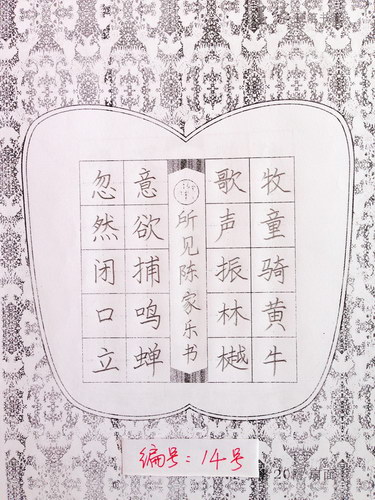 牧童骑黄牛
歌声振林樾
所见陈家乐书
意欲捕鸣蝉
忽然闭口立
编号：14号